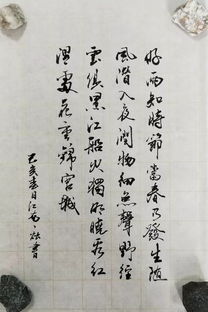 好雨知時節當春乃發生隨
風潛入夜潤物細無聲野徑
雲俱黑江船火獨明曉看紅
濕處花重錦官城
己亥春日江書